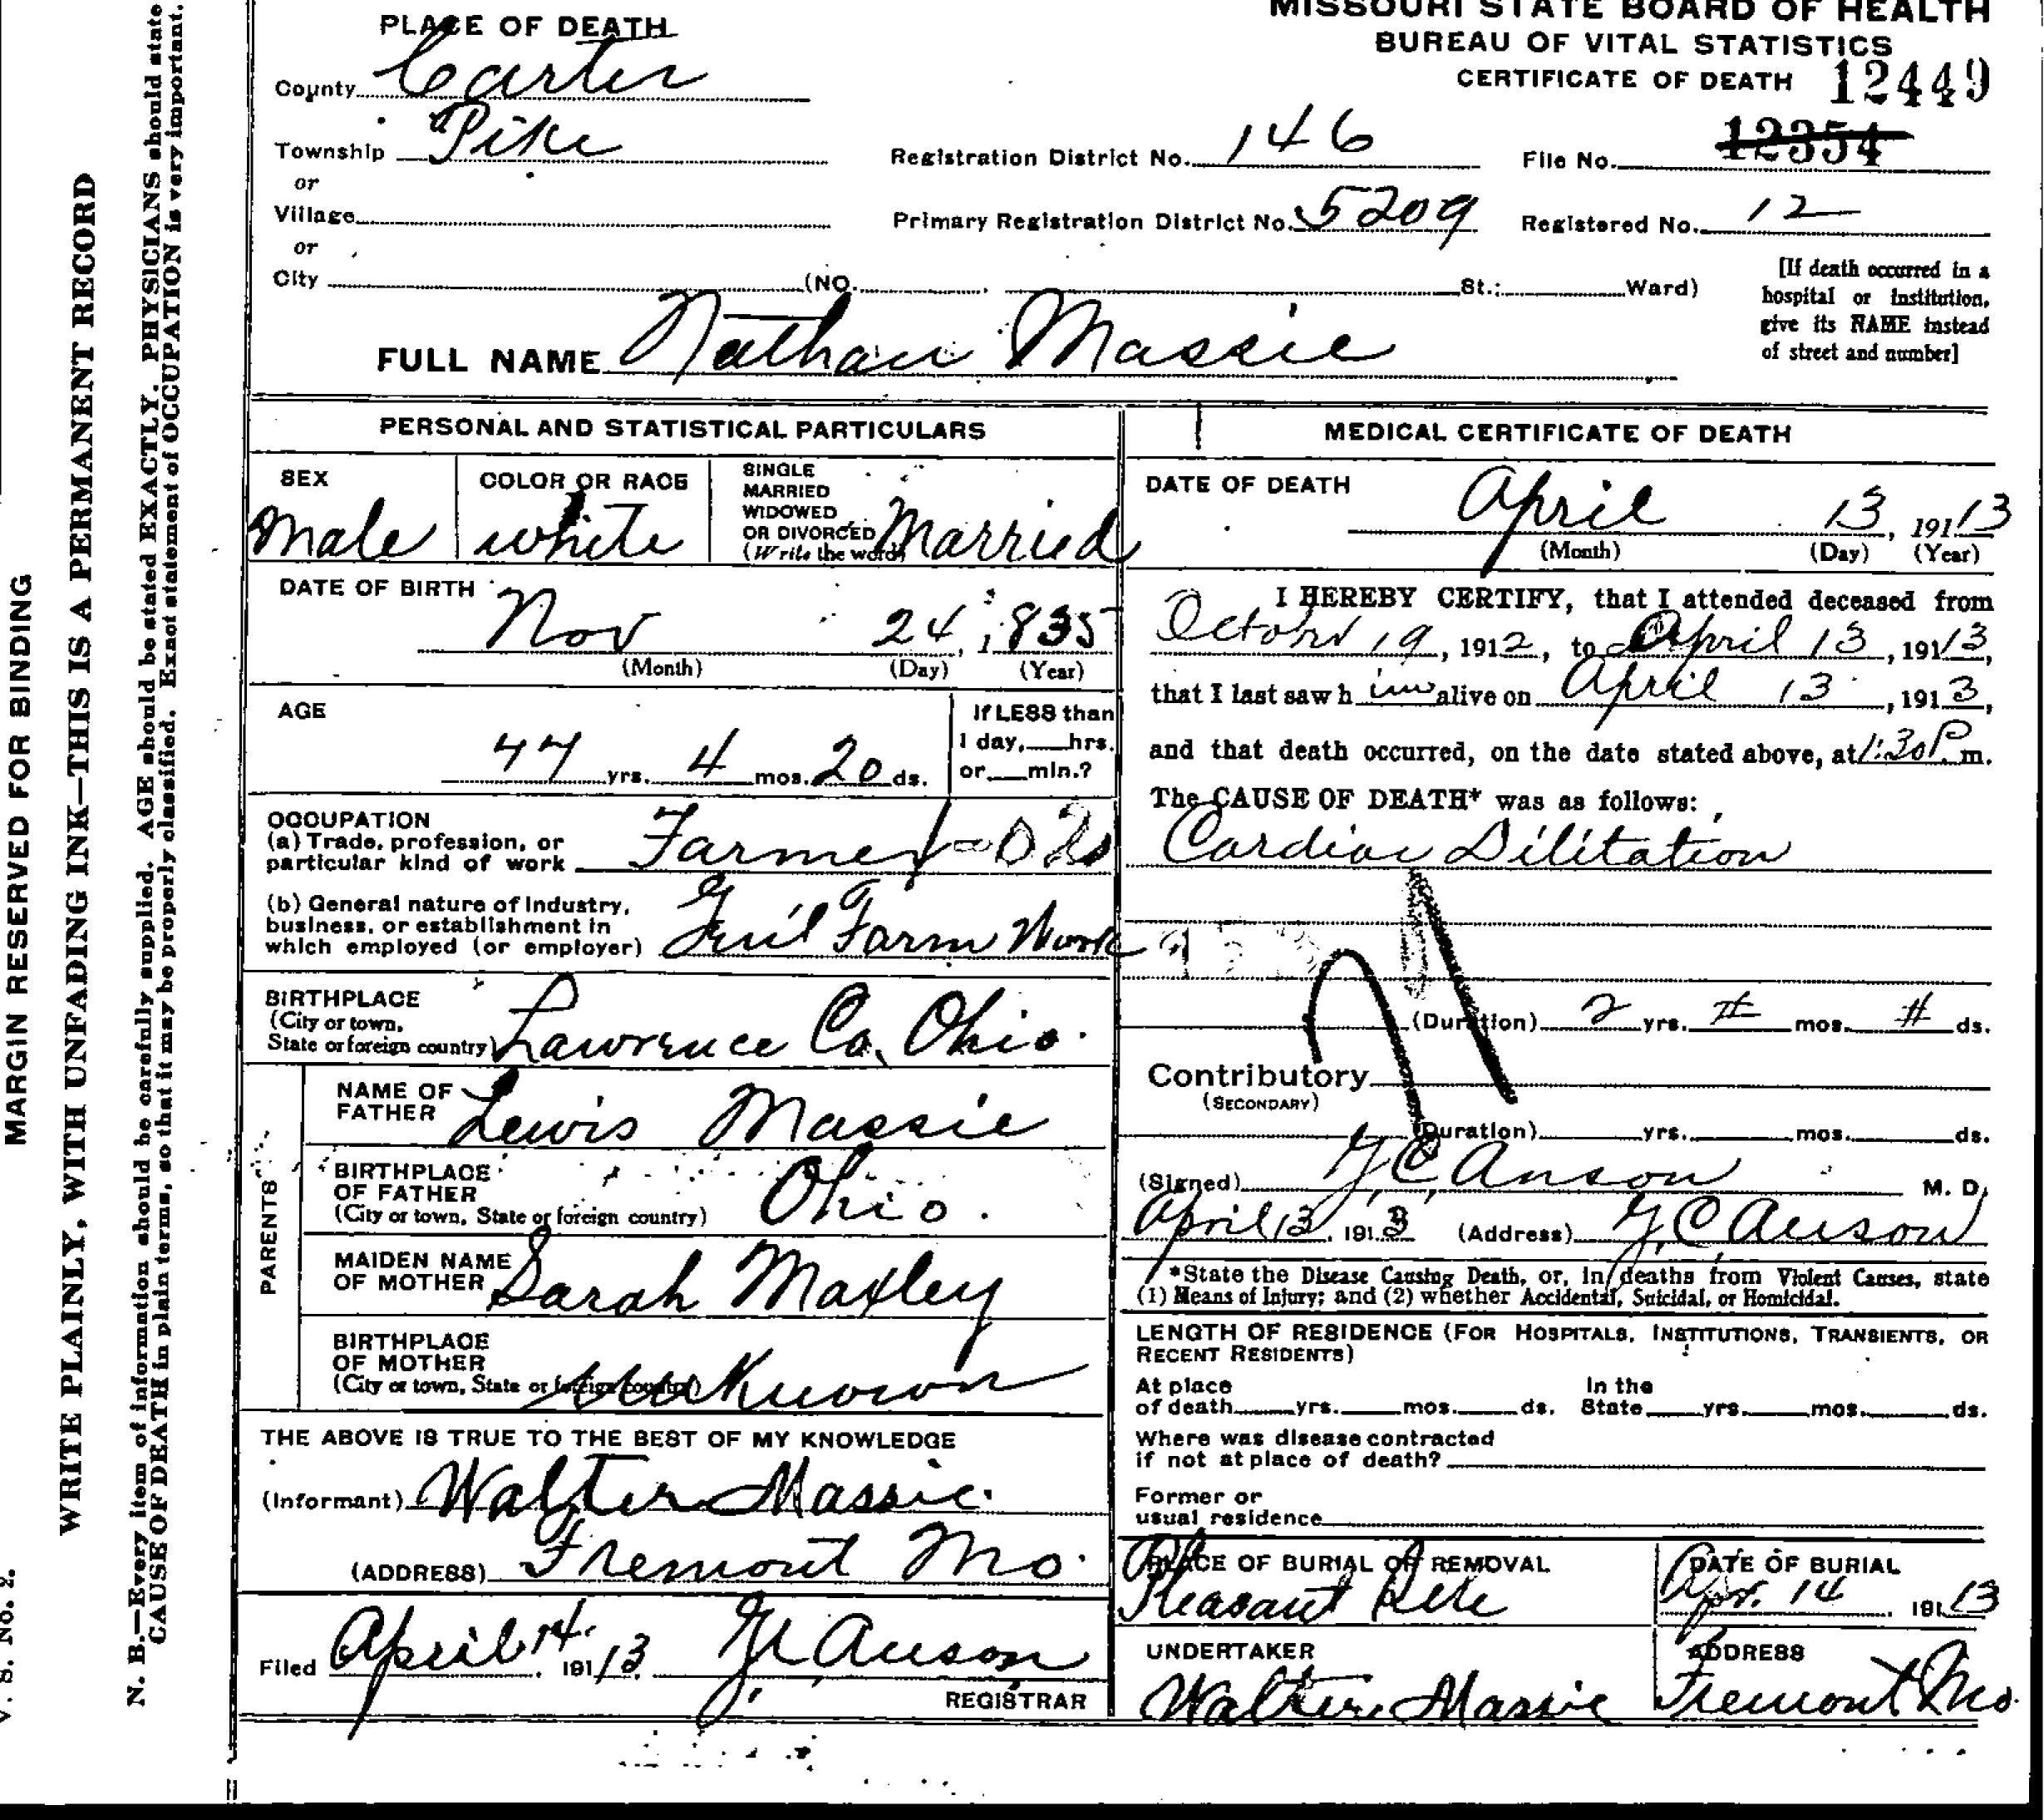 MISSOURI STATE BOARD OF HEALTH
BUREAU OF VITAL STATISTICS
CERTIFICATE OF DEATH 12449
PLACE OF DEATH
County Carter
Township Pike
or
Village
or
City (NO. St.; Ward)
Registration District No. 146
File No. 12354
Primary Registration District No. 5209
Registered No. 12
[If death occurred in a
hospital or institution,
give its NAME instead
of street and number]
FULL NAME Nathan Massie
PERSONAL AND STATISTICAL PARTICULARS
SEX
Male
COLOR OR RACE
white
SINGLE
MARRIED
WIDOWED
OR DIVORCED
(Write the word)
Married
DATE OF BIRTH
Nov 24, 1835
(Month) (Day) (Year)
AGE
77 yrs. 4 mos. 20 ds.
If LESS than
1 day, hrs.
or min.?
OCCUPATION
(a) Trade, profession, or
particular kind of work Farmer
(b) General nature of industry,
business, or establishment in
which employed (or employer) Farm Work
BIRTHPLACE
(City or town,
State or foreign country) Lawrence Co. Ohio.
PARENTS
NAME OF
FATHER Lewis Massie
BIRTHPLACE
OF FATHER
(City or town, State or foreign country) Ohio.
MAIDEN NAME
OF MOTHER Sarah Maxley
BIRTHPLACE
OF MOTHER
(City or town, State or foreign country) unknown
THE ABOVE IS TRUE TO THE BEST OF MY KNOWLEDGE
(Informant) Walter Massie.
(ADDRESS) Fremont Mo.
Filed April 14. 191 13 Anson
REGISTRAR
MEDICAL CERTIFICATE OF DEATH
DATE OF DEATH
April 13, 191 13
(Month) (Day) (Year)
I HEREBY CERTIFY, that I attended deceased from
October 19, 1912, to April 13, 191 13,
that I last saw h im alive on April 13, 1913,
and that death occurred, on the date stated above, at 1:30 P. m.
The CAUSE OF DEATH* was as follows:
Cardiac Dilitation
(Duration) 2 yrs. # mos. # ds.
Contributory
(SECONDARY)
(Duration) yrs. mos. ds.
(Signed) C Anson M. D.
April 13, 1913 (Address) C Anson
*State the Disease Causing Death, or, in deaths from Violent Causes, state
(1) Means of Injury; and (2) whether Accidental, Suicidal, or Homicidal.
LENGTH OF RESIDENCE (FOR HOSPITALS, INSTITUTIONS, TRANSIENTS, OR
RECENT RESIDENTS)
At place
of death yrs. mos. ds.
In the
State yrs. mos. ds.
Where was disease contracted
if not at place of death?
Former or
usual residence
PLACE OF BURIAL OR REMOVAL
Pleasant
DATE OF BURIAL
Apr. 14 191 13
UNDERTAKER
Walter Massie
ADDRESS
Fremont Mo.
MARGIN RESERVED FOR BINDING
WRITE PLAINLY, WITH UNFADING INK—THIS IS A PERMANENT RECORD
N. B.—Every item of information should be carefully supplied. AGE should be stated EXACTLY. PHYSICIANS should state
CAUSE OF DEATH in plain terms, so that it may be properly classified. Exact statement of OCCUPATION is very important.
V. S. No. 2.